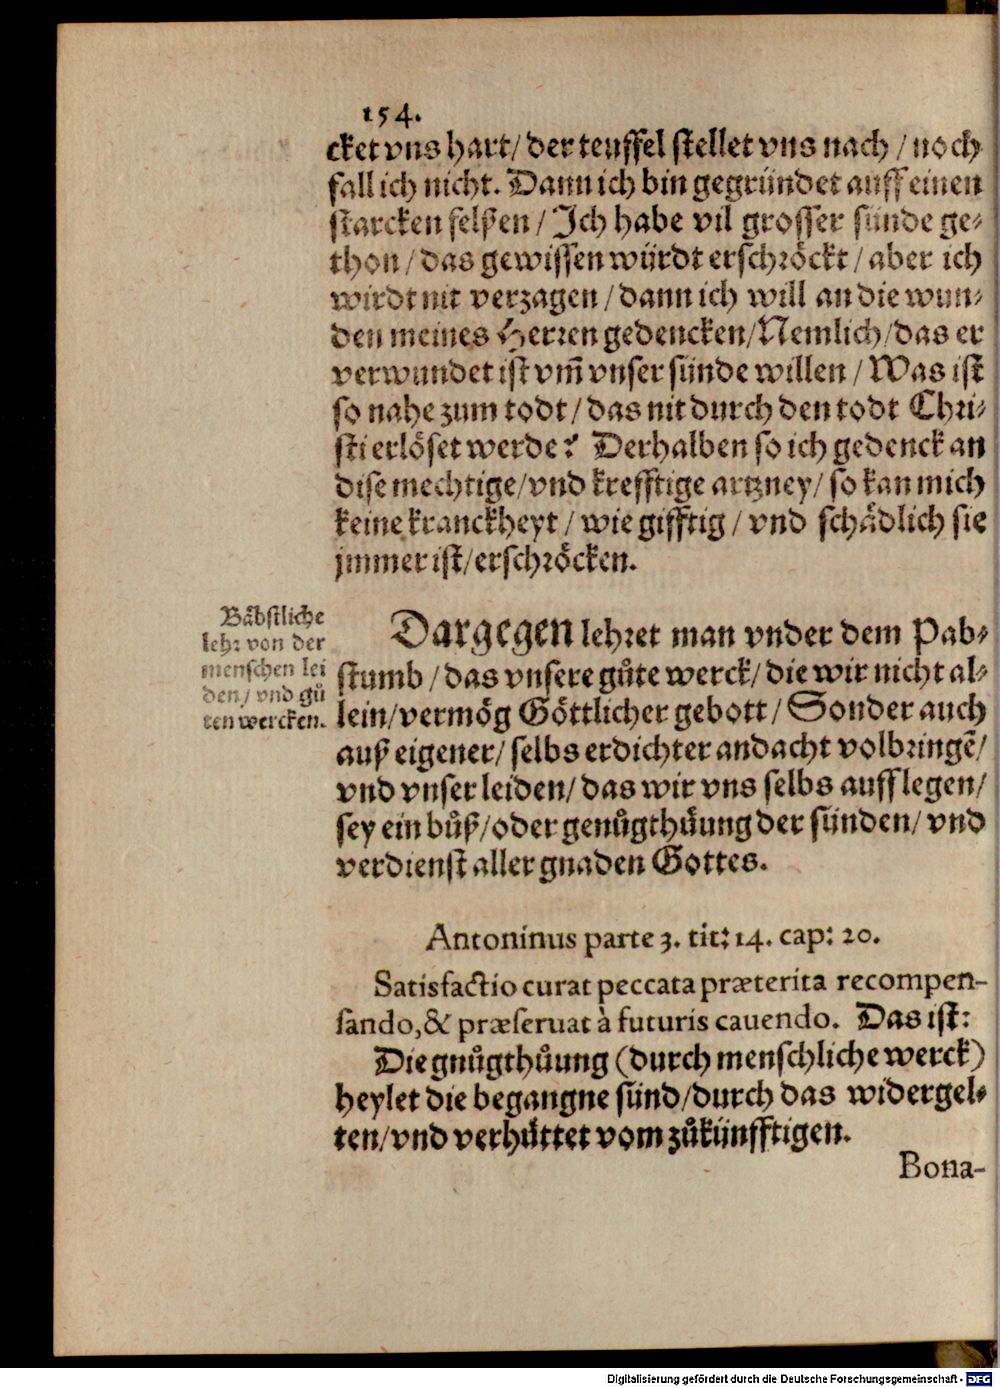 154.
cket vns hart/ der teuffel stellet vns nach / noch
fall ich nicht. Dann ich bin gegründet auff einen
starcken felßen / Ich habe vil grosser sünde ge-
thon / das gewissen würdt erschröckt / aber ich
wirdt nit verzagen / dann ich will an die wun-
den meines Herren gedencken/ Nemlich/ das er
verwundet ist vm̃ vnser sünde willen / Was ist
so nahe zum todt / das nit durch den todt Chri-
sti erlöset werde? Derhalben so ich gedenck an
dise mechtige/ vnd krefftige artzney/ so kan mich
keine kranckheyt / wie gifftig / vnd schädlich sie
jmmer ist/ erschröcken.
Bäbstliche
lehr von der
menschen lei
den/ vnd gů
ten wercken.
Dargegen lehret man vnder dem Pab-
stumb / das vnsere gůte werck/ die wir nicht al-
lein/ vermög Göttlicher gebott / Sonder auch
auß eigener/ selbs erdichter andacht volbringẽ/
vnd vnser leiden/ das wir vns selbs aufflegen/
sey ein bůß/ oder genůgthůung der sünden/ vnd
verdienst aller gnaden Gottes.
Antoninus parte 3. tit: 14. cap: 20.
Satisfactio curat peccata præterita recompen-
sando, & præseruat à futuris cauendo. Das ist:
Die gnůgthůung (durch menschliche werck)
heylet die begangne sünd/ durch das widergel-
ten/ vnd verhüttet vom zůkünfftigen.
Bona-
Digitalisierung gefördert durch die Deutsche Forschungsgemeinschaft - DFG